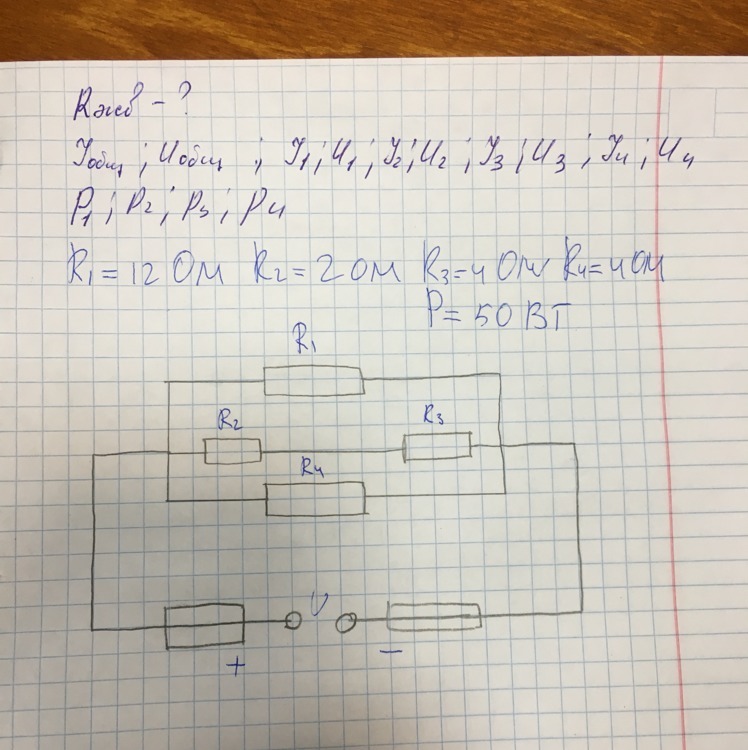 Rэкв - ?
Iобщ ; Uобщ ; I1 ; U1 ; I2 ; U2 ; I3 ; U3 ; I4 ; U4
P1 ; P2 ; P3 ; P4
R1 = 12 Ом R2 = 2 Ом R3 = 4 Ом R4 = 4 Ом
P = 50 ВТ
R1
R2 R3
R4
U
+ −